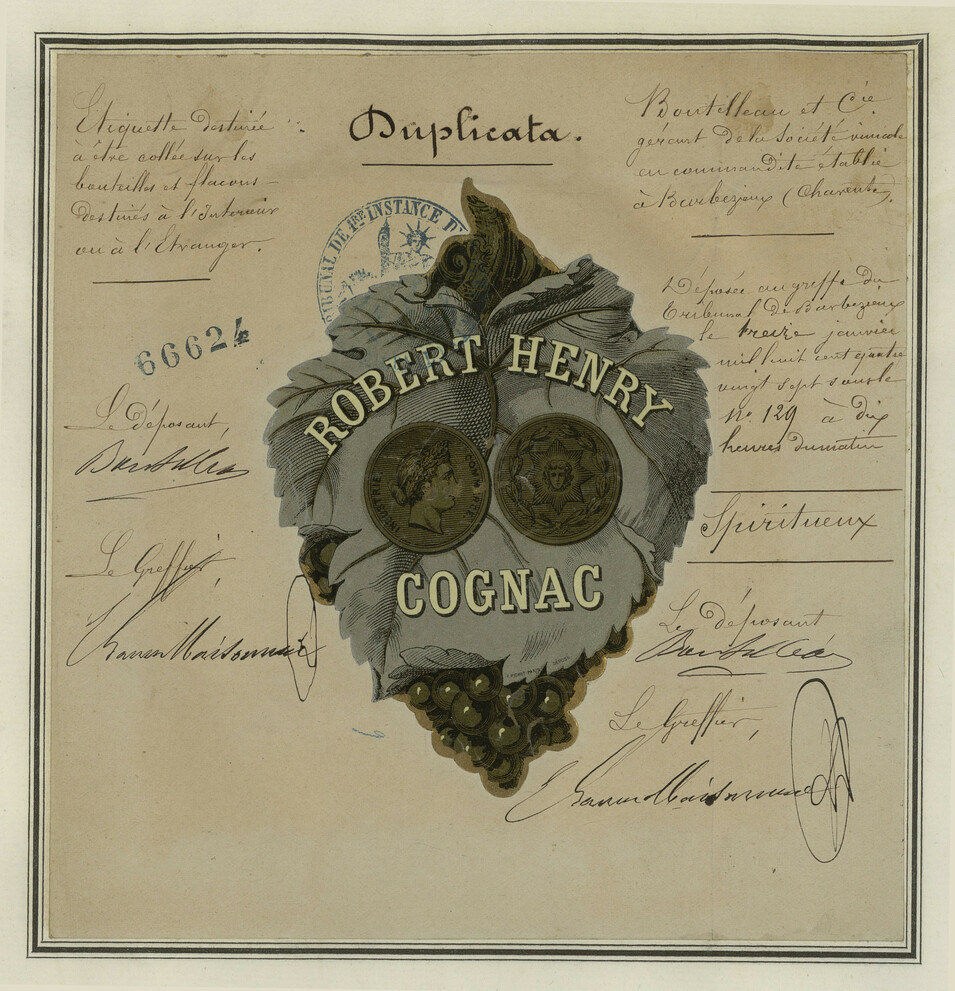 Duplicata.
Etiquette destinée
à être collée sur les
bouteilles et flacons
destinés à l'Interieur
ou à l'Etranger.
66624
Le déposant,
Le Greffier
Boutilleau et Cie
gérant de la Société vinicole
en commandite établie
à Barbezieux (Charente).
Déposée au greffe du
Tribunal de Barbezieux
le treize janvier
mil huit cent quatre
vingt sept sous le
No. 129 à dix
heures du matin
Spiritueux
Le déposant
Boutilleau
Le Greffier,
TRIBUNAL DE 1RE INSTANCE D
ROBERT HENRY
COGNAC